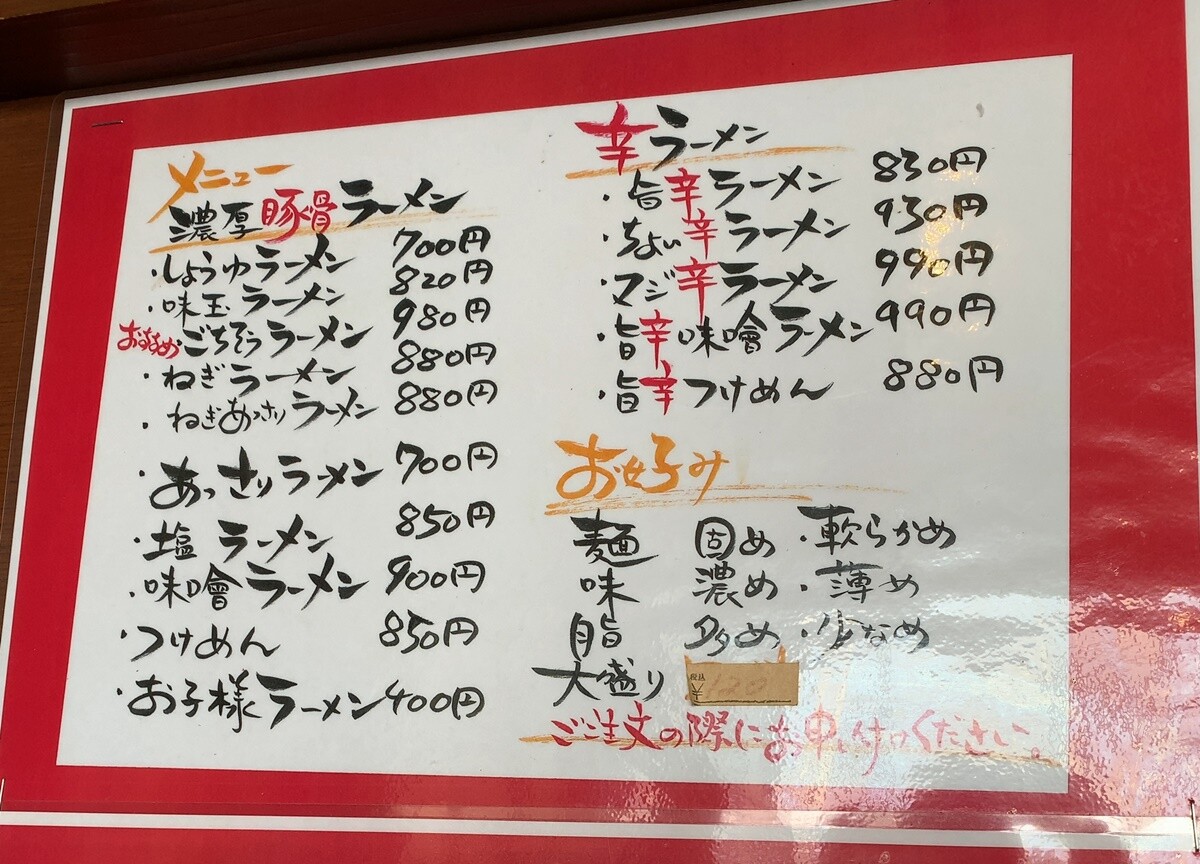 メニュー
濃厚豚骨ラーメン
・しょうゆラーメン 700円
・味玉ラーメン 820円
おすすめ・ごちそうラーメン 980円
・ねぎラーメン 880円
・ねぎあっさりラーメン 880円
・あっさりラーメン 700円
・塩ラーメン 850円
・味噌ラーメン 900円
・つけめん 850円
・お子様ラーメン 400円
辛ラーメン
・旨辛ラーメン 830円
・ちょい辛ラーメン 930円
・マジ辛ラーメン 990円
・旨辛味噌ラーメン 990円
・旨辛つけめん 880円
お好み
麺 固め・軟らかめ
味 濃め・薄め
脂 多め・少なめ
大盛り 税込¥120
ご注文の際にお申し付けください。